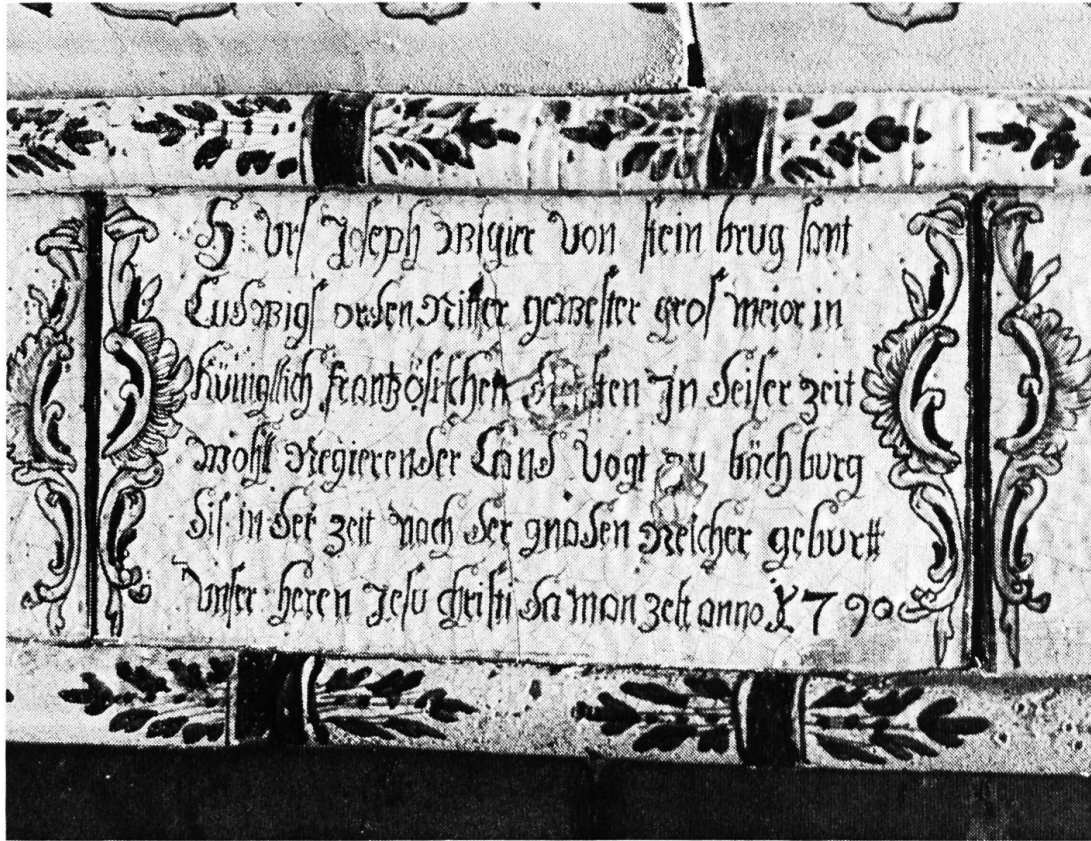 H: Urs Joseph Wigier von stein brug sant
Ludwigs orden Ritter gewester gros meior in
Königlich frantzösischen In deiser zeit
Wohll Regierender Land Vogt zu bächburg
dis in der zeit noch der gnaden Reicher geburtt
Unser heren Jesu christi da man zelt anno 1790